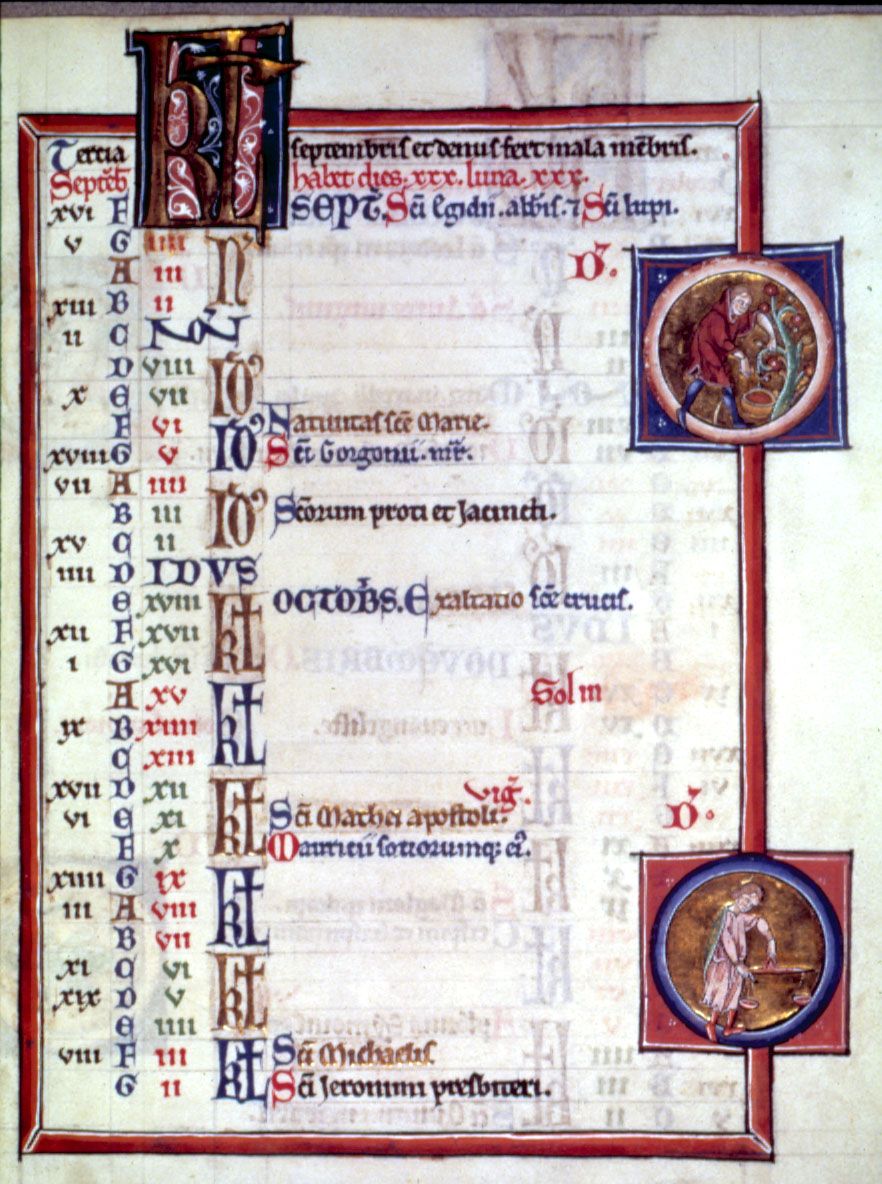 Tercia KL septembris et denus fert mala mēbris.
Septēb habet dies. xxx. luna. xxx.
xvi F SEPT. Sci Egidii. abbis. ⁊ Sci lupi.
v G iiii N
A iii D.
xiii B ii
ii C NON
D viii ID
x E vii
F vi Natiuitas sce Marie.
xviii G v ID Sci Gorgonii. mr.
vii A iiii
B iii ID Scorum proti et Jacincti.
xv C ii
iiii D IDVS
E xviii KL OCTOBS. Exaltatio sce crucis.
xii F xvii
i G xvi
A xv KL Sol in
ix B xiiii
C xiii
xvii D xii KL vig.
vi E xi Sci Mathei apostoli. D.
F x Mauricii sociorumq; ei.
xiiii G ix KL
iii A viii
B vii
xi C vi KL
xix D v
E iiii
viii F iii KL Sci Michaelis
G ii Sci Jeronimi presbiteri.